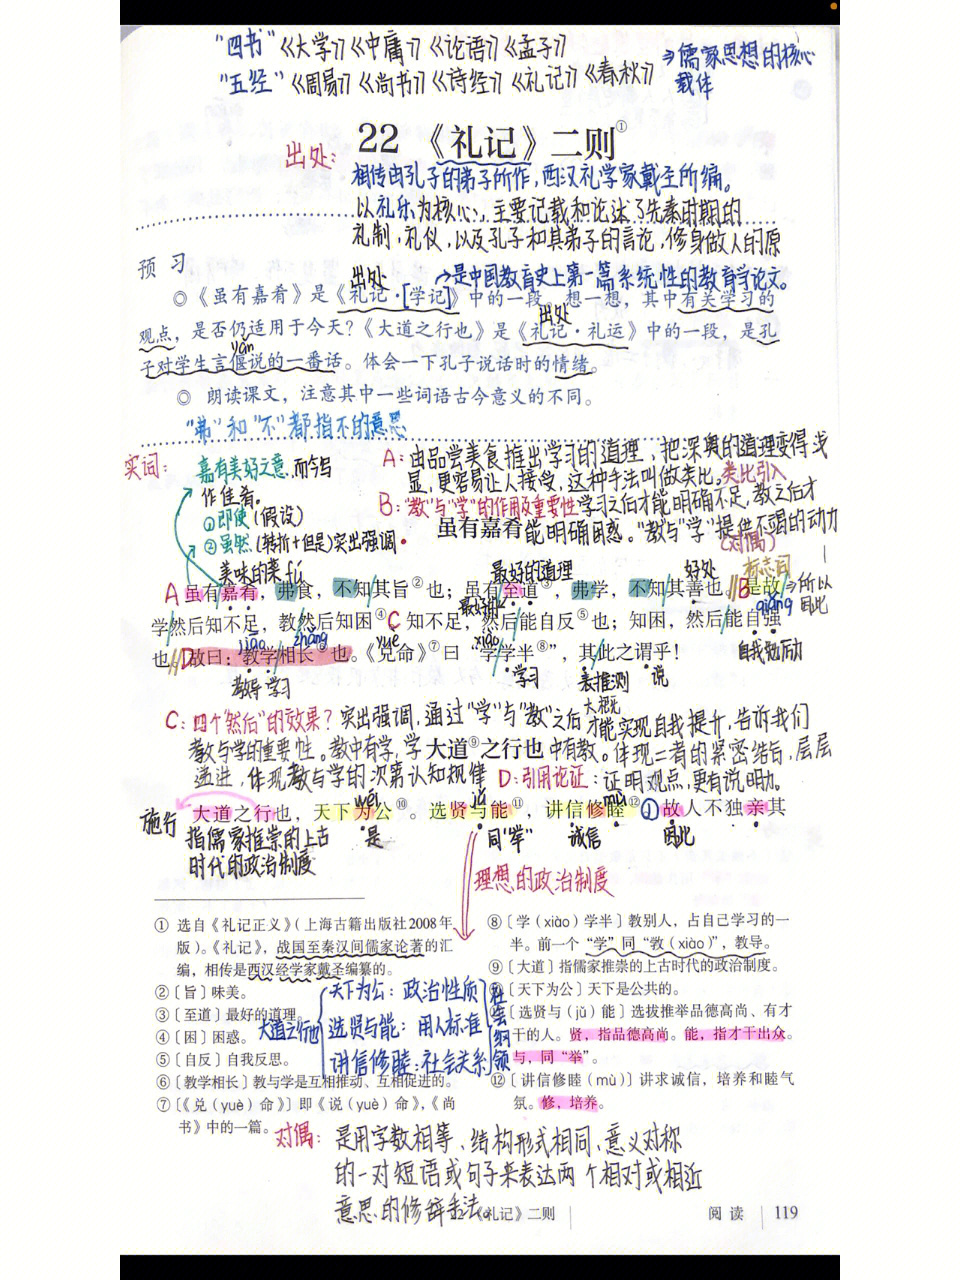 "四书"《大学》《中庸》《论语》《孟子》
"五经"《周易》《尚书》《诗经》《礼记》《春秋》
⇒儒家思想的核心
载体
22 《礼记》二则①
出处:
相传由孔子的弟子所作,西汉礼学家戴圣所编。
以礼乐为核心,主要记载和论述了先秦时期的
礼制,礼仪,以及孔子和其弟子的言论,修身做人的原
预 习
出处 →是中国教育史上第一篇系统性的教育学论文。
◎《虽有嘉肴》是《礼记·[学记]》中的一段。想一想,其中有关学习的
出处
观点,是否仍适用于今天?《大道之行也》是《礼记·礼运》中的一段,是孔
yǎn
子对学生言偃说的一番话。体会一下孔子说话时的情绪。
◎ 朗读课文,注意其中一些词语古今意义的不同。
"弗"和"不"都指不的意思
实词:
嘉有美好之意,而今与
作佳肴。
①即使(假设)
②虽然(转折+但是)突出强调
A:由品尝美食推出学习的道理,把深奥的道理变得浅
显,更容易让人接受,这种手法叫做类比。类比引入
B:"教"与"学"的作用及重要性 学习之后才能明确不足,教之后才
虽有嘉肴
能明确困惑。"教"与"学"提供不竭的动力
(对偶)
美味的菜 fú 最好的道理 好处 标志词
A 虽有嘉肴,弗食,不知其旨②也;虽有至道③,弗学,不知其善也。B是故⇒所以
因此
最好的 qiǎng
学然后知不足,教然后知困④C知不足,然后能自反⑤也;知困,然后能自强
jiào zhǎng yuè xiào 自我勉励
也。D故曰:教学相长⑥也。《兑命》⑦曰"学学半⑧",其此之谓乎!
教导 学习 学习 表推测 说
大概
C:四个"然后"的效果?突出强调,通过"学"与"教"之后才能实现自我提升,告诉我们
教与学的重要性。教中有学,学中有教。体现二者的紧密结合,层层
大道⑨之行也
递进,体现教与学的次第认知规律 D:引用论证:证明观点,更有说明力
wéi jǔ mù
施行 大道之行也,天下为公⑩。选贤与能⑪,讲信修睦⑫①故人不独亲其
指儒家推崇的上古 是 同"举" 诚信 因此
时代的政治制度
理想的政治制度
① 选自《礼记正义》(上海古籍出版社2008年
版)。《礼记》,战国至秦汉间儒家论著的汇
编,相传是西汉经学家戴圣编纂的。
②〔旨〕味美。
③〔至道〕最好的道理。
④〔困〕困惑。
⑤〔自反〕自我反思。
⑥〔教学相长〕教与学是互相推动、互相促进的。
⑦〔《兑(yuè)命》〕即《说(yuè)命》,《尚
书》中的一篇。
大道之行也
天下为公:政治性质
选贤与能:用人标准
讲信修睦:社会关系
社会纲领
⑧〔学(xiào)学半〕教别人,占自己学习的一
半。前一个"学"同"敩(xiào)",教导。
⑨〔大道〕指儒家推崇的上古时代的政治制度。
〔天下为公〕天下是公共的。
〔选贤与(jǔ)能〕选拔推举品德高尚、有才
干的人。贤,指品德高尚。能,指才干出众。
与,同"举"。
⑫〔讲信修睦(mù)〕讲求诚信,培养和睦气
氛。修,培养。
对偶:是用字数相等、结构形式相同、意义对称
的一对短语或句子来表达两个相对或相近
意思的修辞手法。
22 《礼记》二则
阅 读 119